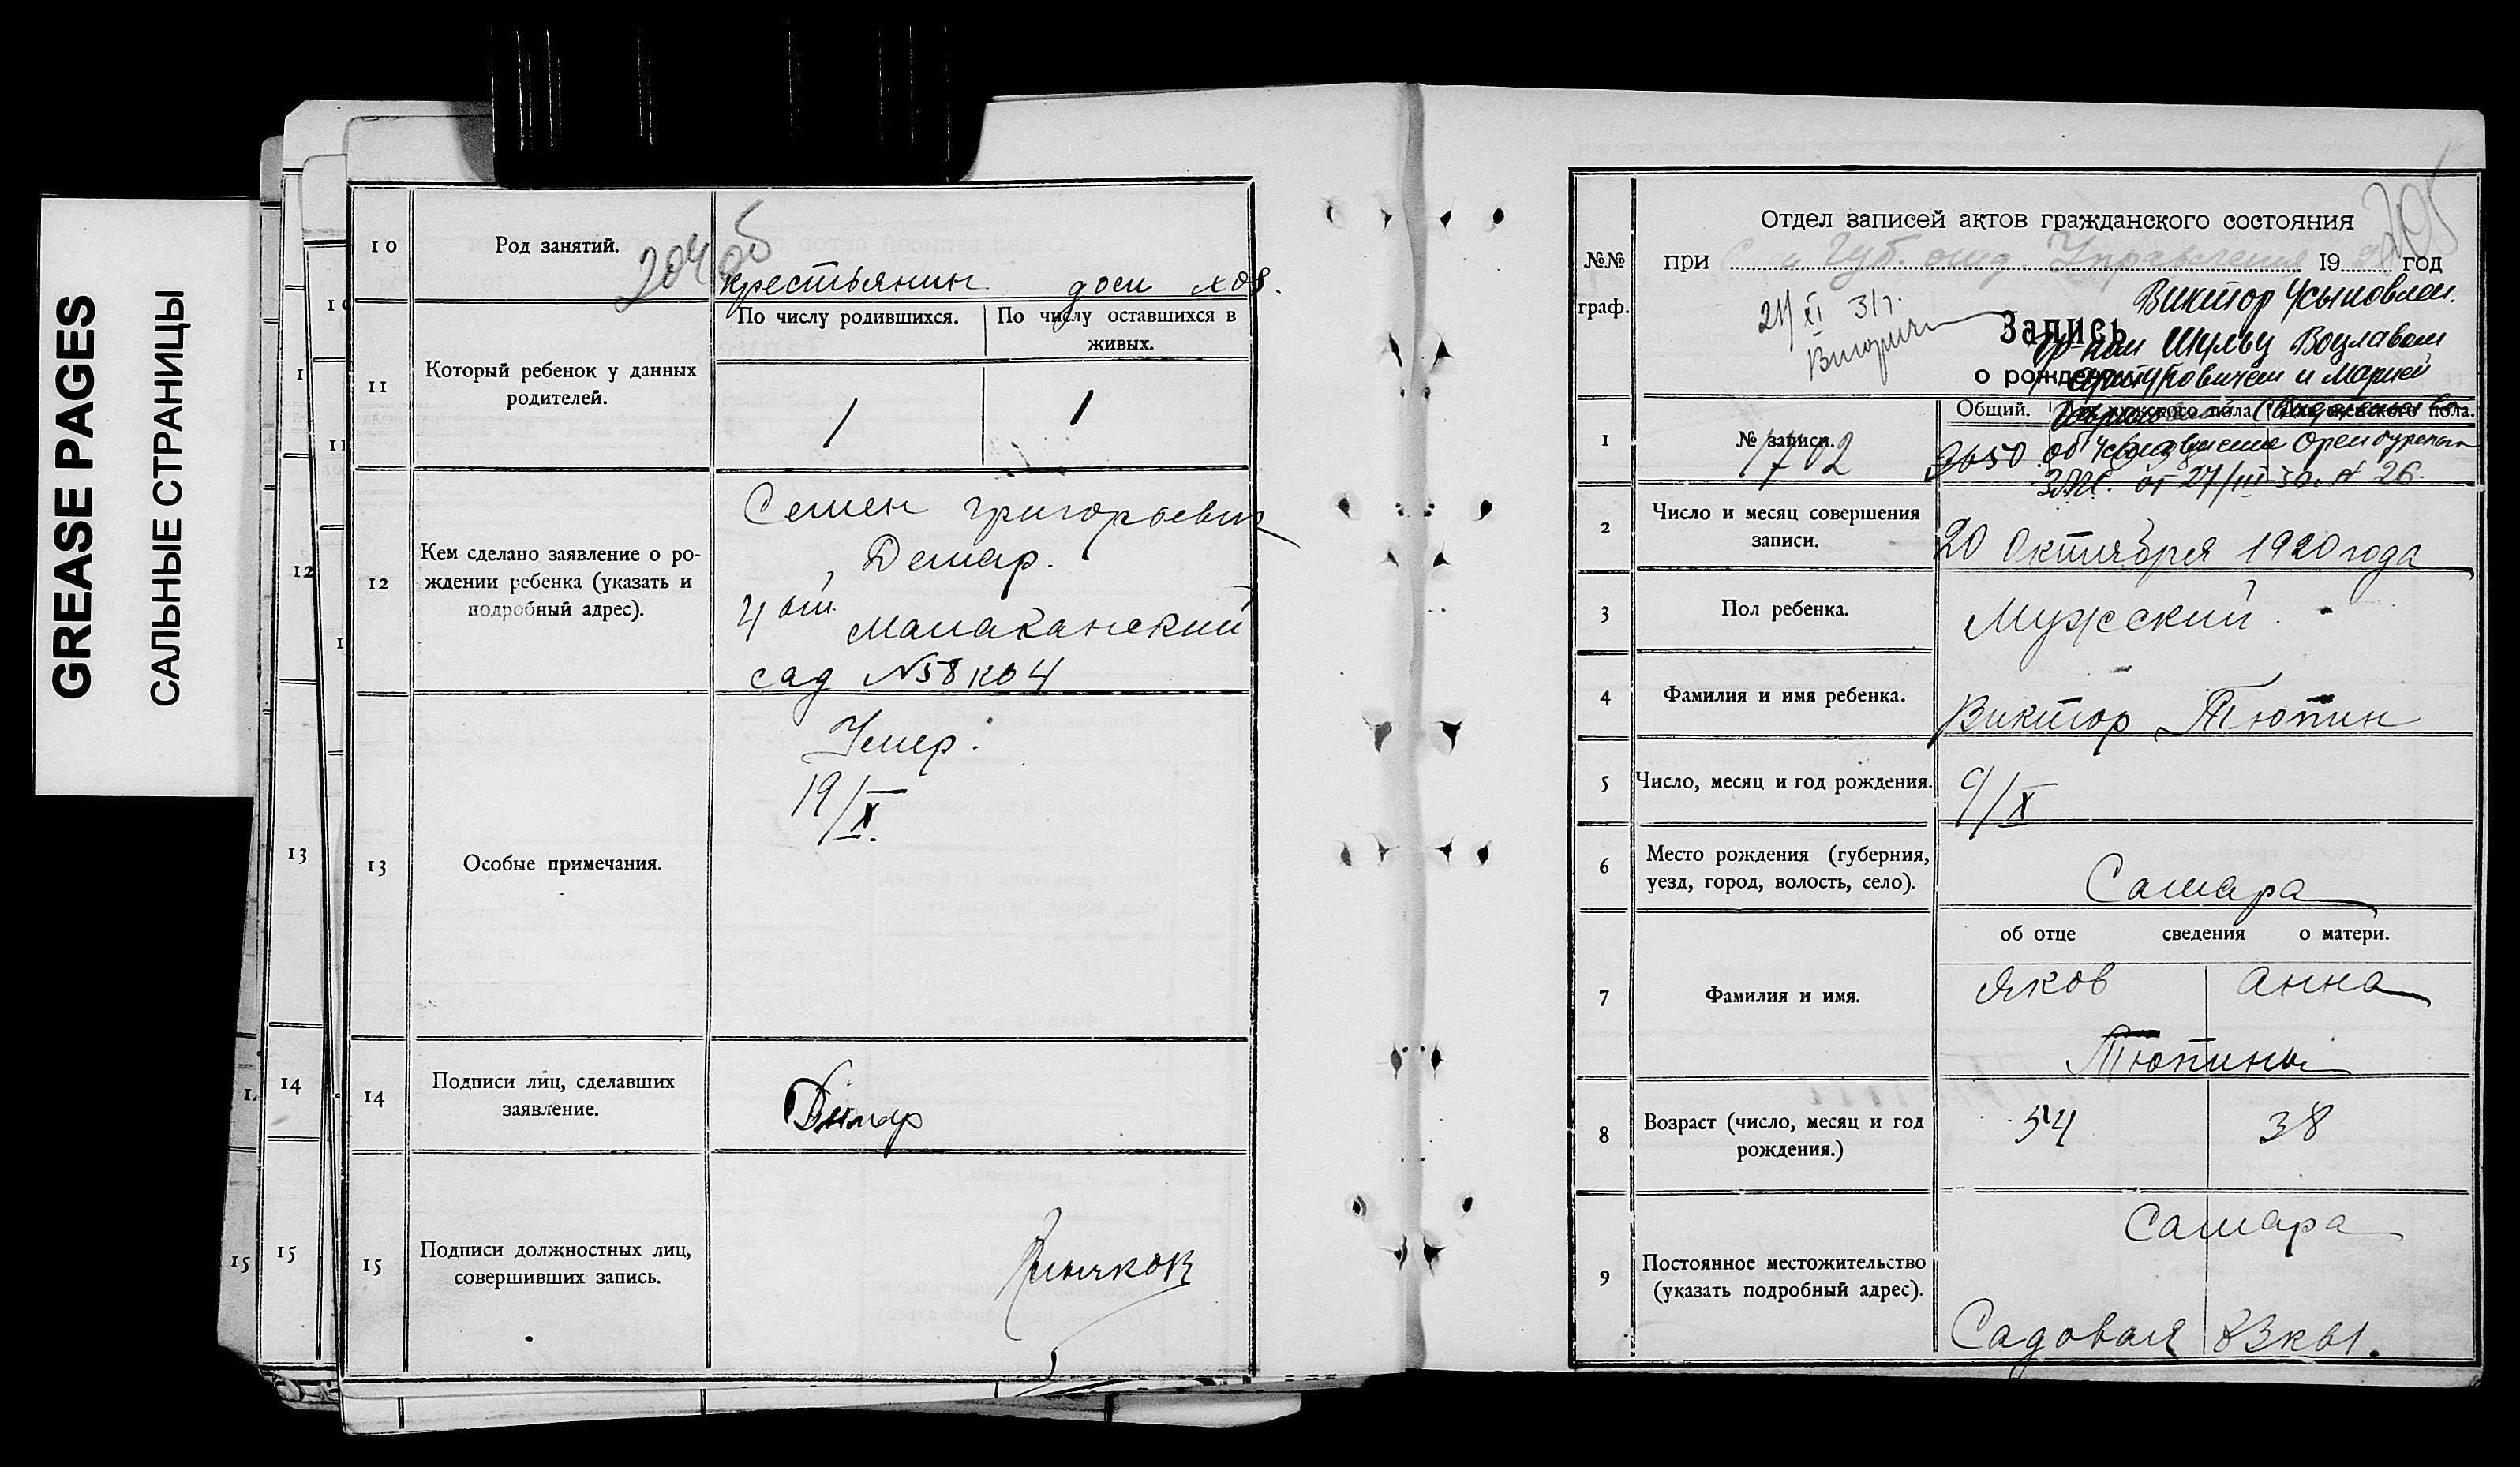 GREASE PAGES
САЛЬНЫЕ СТРАНИЦЫ
10
Род занятий.
204 об
крестьянин дом хоз.
11
Который ребенок у данных
родителей.
По числу родившихся.
По числу оставшихся в
живых.
1
1
12
Кем сделано заявление о ро-
ждении ребенка (указать и
подробный адрес).
Семен Григорьевич
Демар.
сад №58 кв 4
13
Особые примечания.
Умер.
19/X.
14
Подписи лиц, сделавших
заявление.
Димар
15
Подписи должностных лиц,
совершивших запись.
1
10
1
11
12
1
13
14
14
15
15
205
№№
граф.
Отдел записей актов гражданского состояния
при Губ. отд. Управления 19 год
21/XI 31г.
Виктор Усыновлен.
Запись
гр-ном Шульц Воцлавом
о рождении
и Марией
1
№ записи.
1702
Общий.
Для мужского пола.
Для женского пола.
3650
об Усыновлении Оренбургского
ЗАГС. от 27/III № 26.
2
Число и месяц совершения
записи.
20 Октября 1920 года
3
Пол ребенка.
Мужской
4
Фамилия и имя ребенка.
Виктор Тюпин
5
Число, месяц и год рождения.
9/X
6
Место рождения (губерния,
уезд, город, волость, село).
Самара
об отце сведения о матери.
7
Фамилия и имя.
Яков Анна
Тюпины
8
Возраст (число, месяц и год
рождения.)
54 38
9
Постоянное местожительство
(указать подробный адрес).
Самара
Садовая